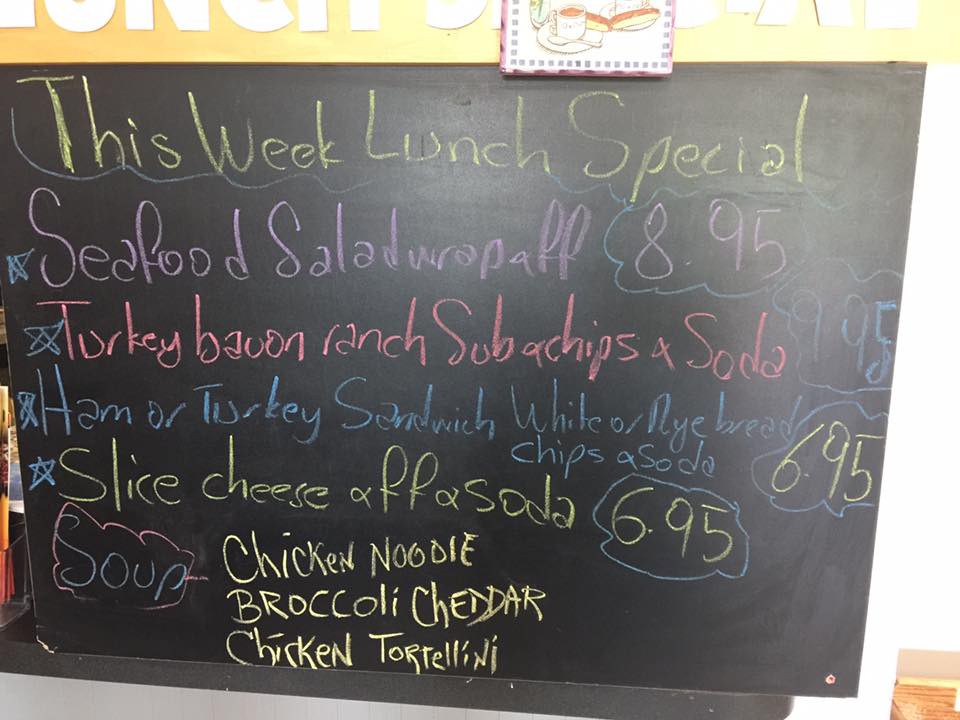 LUNCH SPECIAL
This Week Lunch Special
Seafood Salad wrap a ff 8.95
Turkey bauon ranch Sub a chips a Soda 9.95
Ham or Turkey Sandwich White or Rye bread
chips a soda 6.95
Slice cheese a ff a soda 6.95
Soup - Chicken NOODlE
BROCCOli CHEDDAR
Chicken TORTEllINi